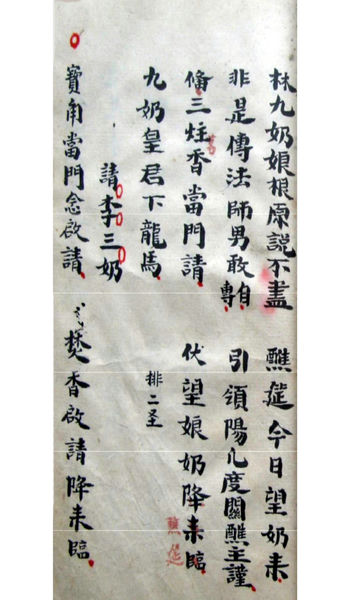 林九奶娘根原說不盡 醮筵今日望奶来
非是傳法師男敢自專 引領陽度關醮主謹
俻三炷香當門請 伏望娘奶降来臨
醮筵
九奶皇君下龍馬 排二圣
請李三奶
寶角當門念啟請 焚香啟請降来臨